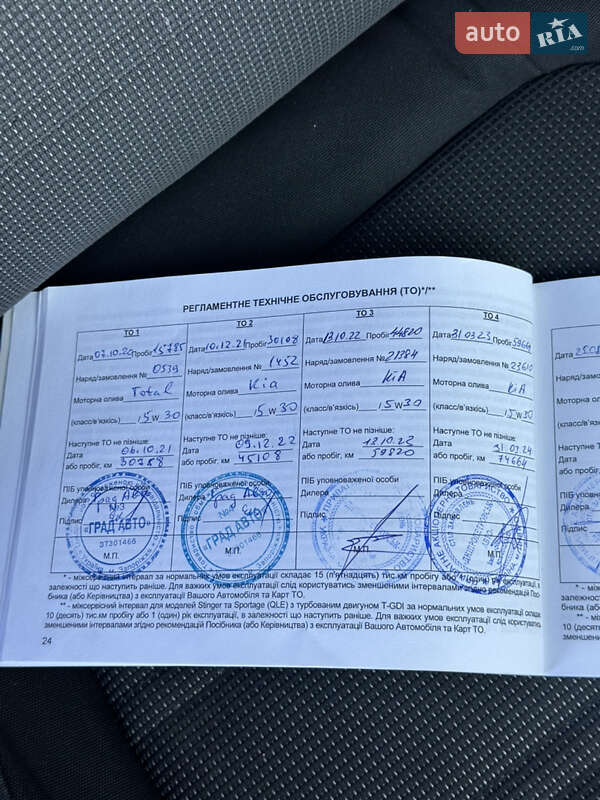 auto RIA .com
РЕГЛАМЕНТНЕ ТЕХНІЧНЕ ОБСЛУГОВУВАННЯ (ТО)*/**
ТО 1
Дата 07.10.20 Пробіг 15785
Наряд/замовлення № 0519
Моторна олива Total
(класс/в'язкісь) 5 w 30
Наступне ТО не пізніше:
Дата 06.10.21
або пробіг, км 30788
ПІБ уповноваженої особи
Підпис
«ГРАД АВТО»
37301466
М.П.
ТО 2
Дата 10.12.21 Пробіг 30108
Наряд/замовлення № 1452
Моторна олива Kia
(класс/в'язкісь) 5 w 30
Наступне ТО не пізніше:
Дата 09.12.22
або пробіг, км 45108
ПІБ уповноваженої особи
Дилера
Підпис
«ГРАД АВТО»
37301466
М.П.
ТО 3
Дата 13.10.22 Пробіг 44820
Наряд/замовлення № 21384
Моторна олива KiA
(класс/в'язкісь) 5 w 30
Наступне ТО не пізніше:
Дата 12.10.23
або пробіг, км 59820
ПІБ уповноваженої особи
Дилера
Підпис
М.П.
ТО 4
Дата 31.03.23 Пробіг 59664
Наряд/замовлення № 23610
Моторна олива KiA
(класс/в'язкісь) 5 w 30
Наступне ТО не пізніше:
Дата 31.03.24
або пробіг, км 74664
ПІБ уповноваженої особи
Дилера
Підпис
* - міжсервісний інтервал за нормальних умов експлуатації складає 15 (п'ятнадцять) тис.км пробігу або 1(один) рік експлуатації, в
залежності що наступить раніше. Для важких умов експлуатації слід користуватись зменшеними інтервалами згідно рекомендацій Посі-
бника (або Керівництва) з експлуатації Вашого Автомобіля та Карт ТО.
** - міжсервісний інтервал для моделей Stinger та Sportage (QLE) з турбованим двигуном T-GDI за нормальних умов експлуатації складає
10 (десять) тис.км пробігу або 1 (один) рік експлуатації, в залежності що наступить раніше. Для важких умов експлуатації слід користуватись
зменшеними інтервалами згідно рекомендацій Посібника (або Керівництва) з експлуатації Вашого Автомобіля та Карт ТО.
24
Дата
Наряд/замовл
Моторна олив
(класс/в'язкісь)
Наступне ТО
Дата
або пробіг, км
ПІБ уповнова
Дилера
Підпис
* - між
залежності
бника (або
** - між
10 (десять)
зменшеним